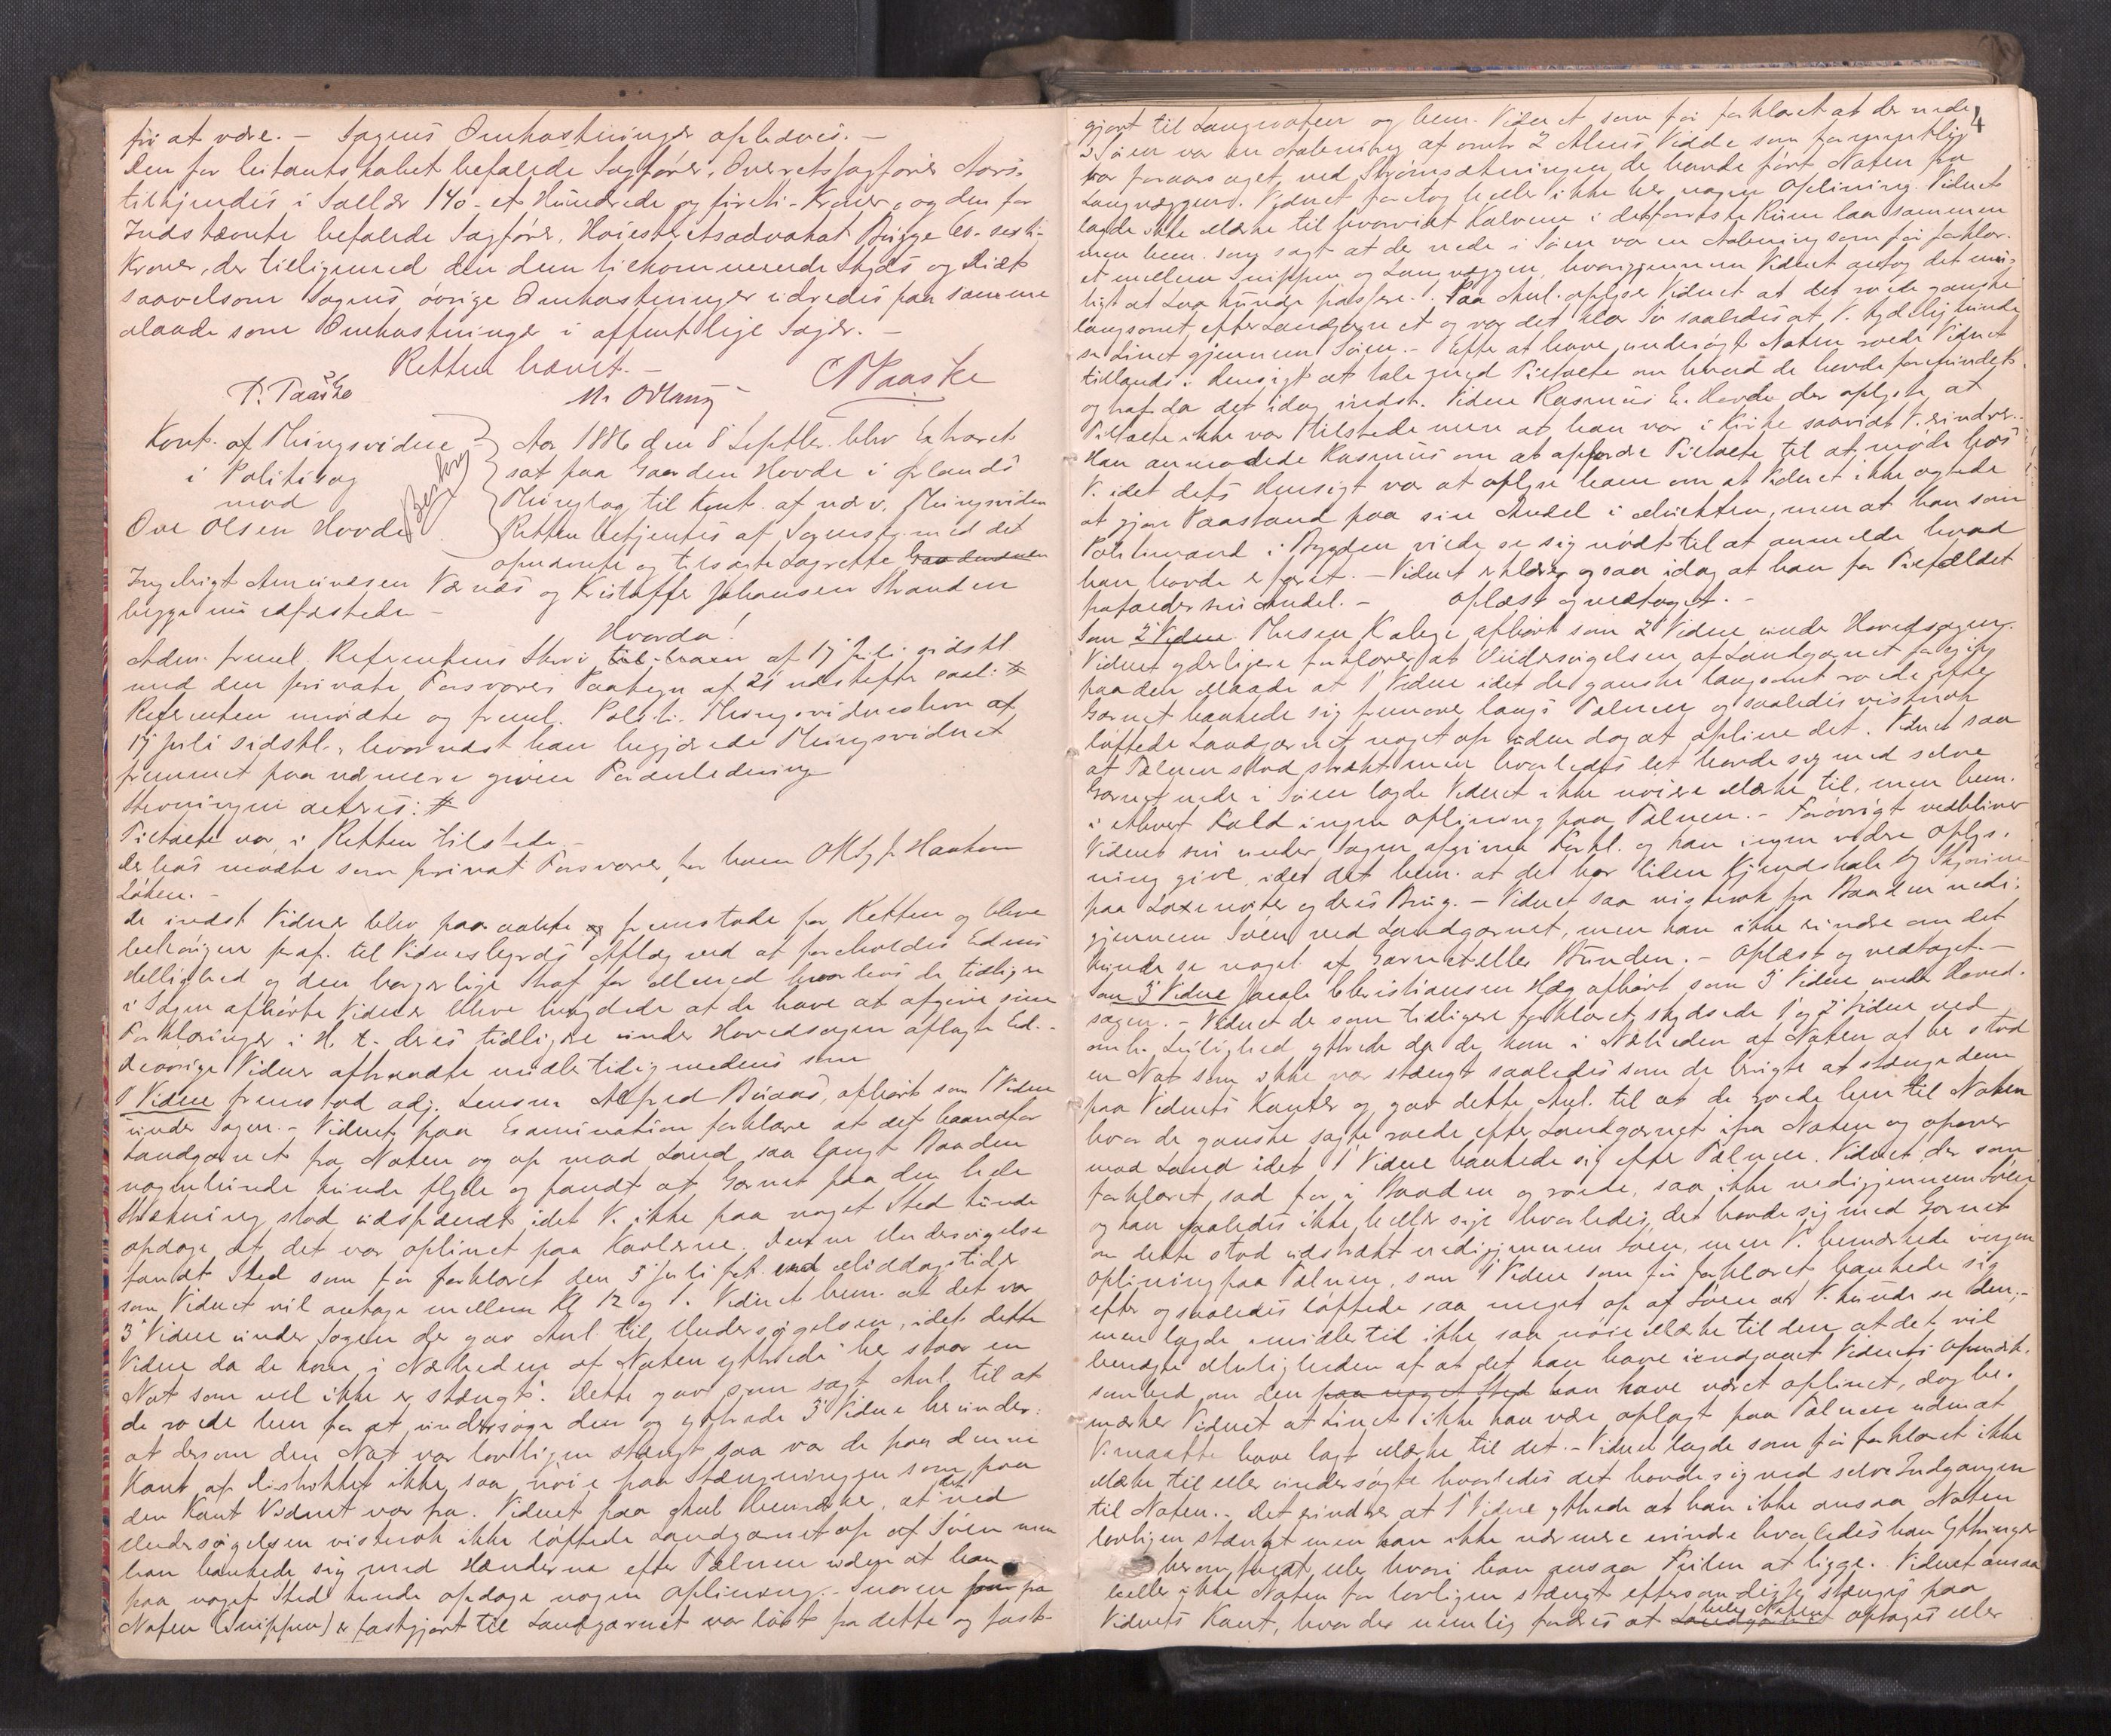 fri at være. – Sagens Omkostninger ophæves. –
Den for Citantskabet befalede Sagfører, Overretssagfører Aars
tilkjendes i Sallær 140 - et Hundrede og firti - Kroner, og den for
Indstævnte befalede Sagfører, Høiesteretsadvokat Bugge 60 - sexti -
Kroner, der tilligemed den dem tilkommende Skyds og Diæt
saavelsom Sagens øvrige Omkostninger udredes paa samme
Maade som Omkostninger i offentlige Sager. –
Retten hævet. –
P. Paaske M. Ødlaug
Kont. af Thingsvidne
i Politisag
mod
Ove Olsen Hovde
Beskrev
Aar 1886 den 8' Septbr. blev Extraret
sat paa Gaarden Hovde i Ørlands
Thinglag til Kont. af nævn. Thingsvidne
Retten betjentes af Sognsfg. med det
opnævnte og tilsagte Lagrette
Ingebrigt Amundsen Værnæs og Kristoffer Johansen Stranden
begge nu edfæstede –
Hvorda!
Adm. freml. Referentens Skriv. af 17 Juli sidstl.
med den private Forsvarers Paategn. af 21' næstefter saal: #
Referenten mødte og freml. Politi-Thingsvidneskrivn af
17 Juli sidstl., hvornæst han begjærede Thingsvidnet
fremmet paa nærmere given Foranledning
Stevningen acteres: #
Tiltalte var i Retten tilstede –
Derhos mødte som privat Forsvarer for ham ORSgf. Haakon
Løken. –
De indst. Vidner blev paaraabte fremstode for Retten og bleve
behørigen præp. til Vidnesbyrds Aflæg ved at foreholdes Edens
Hellighed og den borgerlige Straf for Mened hvorhos de tidligere
i Sagen afhørte Vidner bleve betydede at de have at afgive sine
Forklaringer i H. t. deres tidligere under Hovedsagen aflagte Ed. –
De øvrige Vidner aftraadte imidlertidig medens som
1' Vidne fremstod adj. Lensm. Alfred Buaas, afhørt som 1' Vidne
under Sagen. – Vidnet paa Examination forklare at det haandfor
Landgarnet fra Noten og op mod Land saa langt Baaden
nogenlunde kunde flyde og fandt at Garnet paa den hele
Strækning stod udspændt idet V. ikke paa noget Sted kunde
opdage at det var oplinet paa Kavlerne. Denne Undersøgelse
fandt Sted som før forklaret den 3' Juli ved Middagstider
som Vidnet vil antage mellem Kl. 12 og 1. Vidnet bem. at det var
3' Vidne under Sagen der gav Anl. til Undersøgelsen, idet dette
Vidne da de kom i Nærheden af Noten ythrede "her staar en
Not som vel ikke er stængt". Dette gav som sagt Anl. til at
de roede hen for at undersøge den og ythrede 3' Vidne herunder
at dersom den Not var lovligen stængt saa var de paa denne
Kant af Distriktet ikke saa nøie paa Stængningen som paa
den Kant Vidnet var fra. Vidnet paa Anl. bemærker, at det ved
Undersøgelsen vistnok ikke løftede Landgarnet op af Søen men
han hankede sig med Hænderne efter Tælnen uden at han
paa noget Sted kunde opdage nogen Oplining. – Snoren fra
Noten (Snippen) er fastgjort til Landgarnet var løst fra dette og fast-
4
gjort til Langnoten og bem. Vidnet som før forklaret at der nede
i Søen var en Aabning af omtr. 2 Alens Vidde som formentlig
var foraarsaget ved Strømsætningen, de havde ført Noten fra
Langvæggen. Vidnet foretog heller ikke her nogen Oplining. Vidnet
lagde ikke Mærke til hvorvidt Kalvene i det forreste Rum laa sammen
men bem. som sagt at der nede i Søen var en Aabning som før forklar-
et mellem Snippen og Langvæggen, hvorigjennem Vidnet antog det mu-
ligt at Lax kunde passere. – Paa Anl. oplyser Vidnet at det roede ganske
langsomt efter Landgarnet og var det klar Sø saaledes at V. tydelig kunde
se Linet gjennem Søen. – Efter at have undersøgt Noten roede Vidnet
tillands i Hensigt at tale med Tiltalte om hvad de havde forefundet
og traf da det idag indst. Vidne Rasmus E. Hovde der oplyste at
Tiltalte ikke var tilstede men at han var i Kirke saavidt V. erindrer.
Han anmodede Rasmus om at opfordre Tiltalte til at møde hos
V. idet dets Hensigt var at oplyse ham om at Vidnet ikke agtede
at gjøre Paastand paa sin Andel i Mulkten, men at han som
Politimand i Bygden vilde se sig nødt til at anmelde hvad
han havde erfaret. – Vidnet erklærer ogsaa idag at han for Tilfældet
frafalder sin Andel. – Oplæst og vedtaget. –
Som 2' Vidne Thesen Kalege afhørt som 2' Vidne under Hovedsagen.
Vidnet yderligere forklarer at Undersøgelsen af Landgarnet foregik
paa den Maade at 1' Vidne idet de ganske langsomt roede efter
Garnet hankede sig fremover langs Tælnen og saaledes vistnok
løftede Landgarnet noget op uden dog at opline det. Vidnet saa
at Tælnen stod strakt men hvorledes det havde sig med selve
Garnet nede i Søen lagde Vidnet ikke nøiere Mærke til, men bem.
i ethvert Fald ingen Oplining paa Tælnen. – Forøvrigt vedbliver
Vidnet sin under Sagen afgivne Forkl. og kan ingen videre Oplys-
ning give idet det bem. at det har liden Kjendskab til
paa Laxenøter og deres Brug. – Vidnet saa vistnok fra Baaden nedi-
gjennem Søen ved Landgarnet, men kan ikke erindre om det
kunde se noget af Garnet eller Bunden. – Oplæst og vedtaget. –
Som 3' Vidne Jacob Christiansen Hæg afhørt som 3' Vidne under Hoved-
sagen. – Vidnet der som tidligere forklaret skydsede 1' og 2' Vidne ved
omh. Leilighed ythrede da de kom i Nærheden af Noten at her stod
en Not som ikke var stængt saaledes som de brugte at stænge dem
paa Vidnets Kanter og gav dette Anl. til at de roede hen til Noten
hvor de ganske sagte roede efter Landgarnet ifra Noten og opover
mod Land idet 1' Vidne hankede sig efter Tælnen. Vidnet der som
forklaret sad for i Baaden og roede, saa ikke nedigjennem Søen
og kan saaledes ikke heller sige hvorledes det havde sig med Garnet
om dette stod udstrakt nedigjennem Søen, men V. bemærkede ingen
Oplining paa Tælnen, som 1' Vidne som før forklaret hankede sig
efter og saaledes løftede saa meget op af Søen at V. kunde se den, –
men lagde imidlertid ikke saa nøie Mærke til den at det vil
benægte Muligheden af at det kan have undgaaet Vidnets Opmærk-
somhed om den paa noget Sted kan have været oplinet, dog be-
mærker Vidnet at Linet ikke kan være oplagt paa Tælnen uden at
V. maatte have lagt Mærke til det. – Vidnet lagde som før forklaret ikke
Mærke til eller undersøgte hvorledes det havde sig ved selve Indgangen
til Noten. – Det erindrer at 1' Vidne ythrede at han ikke ansaa Noten
lovligen stængt men kan ikke nærmere erindre hvorledes han Ythringer
herom faldt, eller hvori han ansaa Feilen at ligge. Vidnet ansaa
heller ikke Noten for lovligen stængt eftersom disse stænges paa
Vidnets Kant, hvor der nemlig fordres at hele Noten optages eller